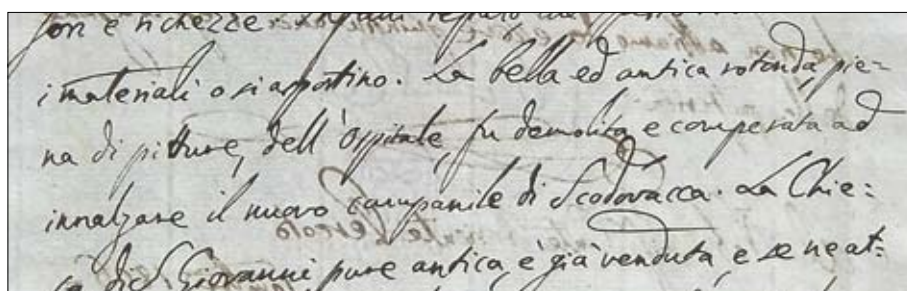 ri e richezze.
i materiali o si asportino. La bella ed antica rotonda, pie=
na di pitture, dell'Ospitale, fu demolita e comperata ad
innalzare il nuovo campanile di Scodovacca. La Chie=
sa di S. Giovanni pure antica, è già venduta, e se ne at=